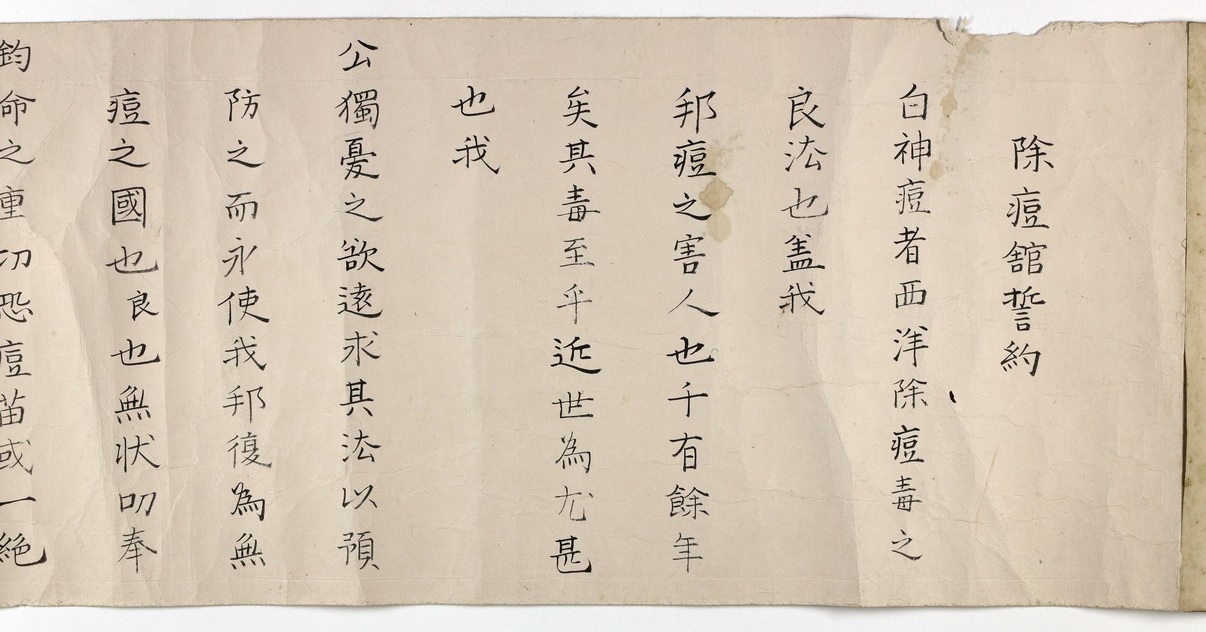 除痘舘誓約
白神痘者西洋除痘毒之
良法也盖我
邦痘之害人也千有餘年
矣其毒至乎近世為尤甚
也我
公獨憂之欲遠求其法以預
防之而永使我邦復為無
痘之國也良也無状叨奉
鈞命之重切恐痘苗或一絶